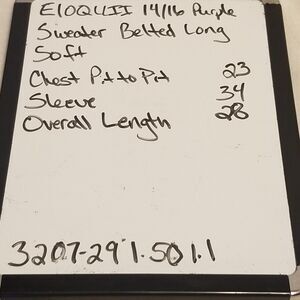 ElOQUII 14/16 Purple
Sweater Belted Long
Soft
Chest Pit to Pit 23
Sleeve 34
Overall Length 28
3207-291.501.1